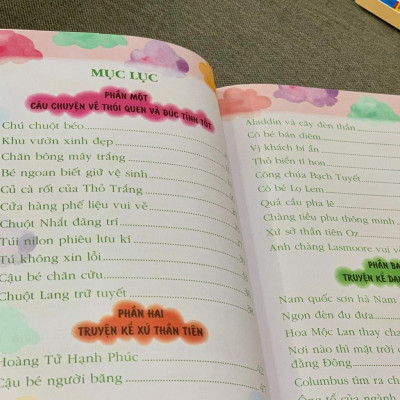 MỤC LỤC
PHẦN MỘT
CÂU CHUYỆN VỀ THÓI QUEN VÀ ĐỨC TÍNH TỐT
Chú chuột béo
Khu vườn xinh đẹp
Chăn bông mây trắng
Bé ngoan biết giữ vệ sinh
Củ cà rốt của Thỏ Trắng
Cửa hàng phế liệu vui vẻ
Chuột Nhắt đãng trí
Túi nilon phiêu lưu kí
Tú không xin lỗi
Cậu bé chăn cừu
Chuột Lang trữ tuyết
PHẦN HAI
TRUYỆN KỂ XỨ THẦN TIÊN
Hoàng Tử Hạnh Phúc
Cậu bé người băng
Aladdin và cây đèn thần
Cô bé bán diêm
Vị khách bí ẩn
Thỏ biển tí hon
Công chúa Bạch Tuyết
Cô bé Lọ Lem
Quả cầu pha lê
Chàng tiều phu thông minh
Xứ sở thần tiên Oz
Anh chàng Lasmoore vui vẻ
PHẦN BA
TRUYỆN KỂ DA
Nam quốc sơn hà Nam
Ngọn đèn đu đưa
Hoa Mộc Lan thay cha
Nơi nào thì mặt trời
đằng Đông
Columbus tìm ra ch
Ông tổ của ngành